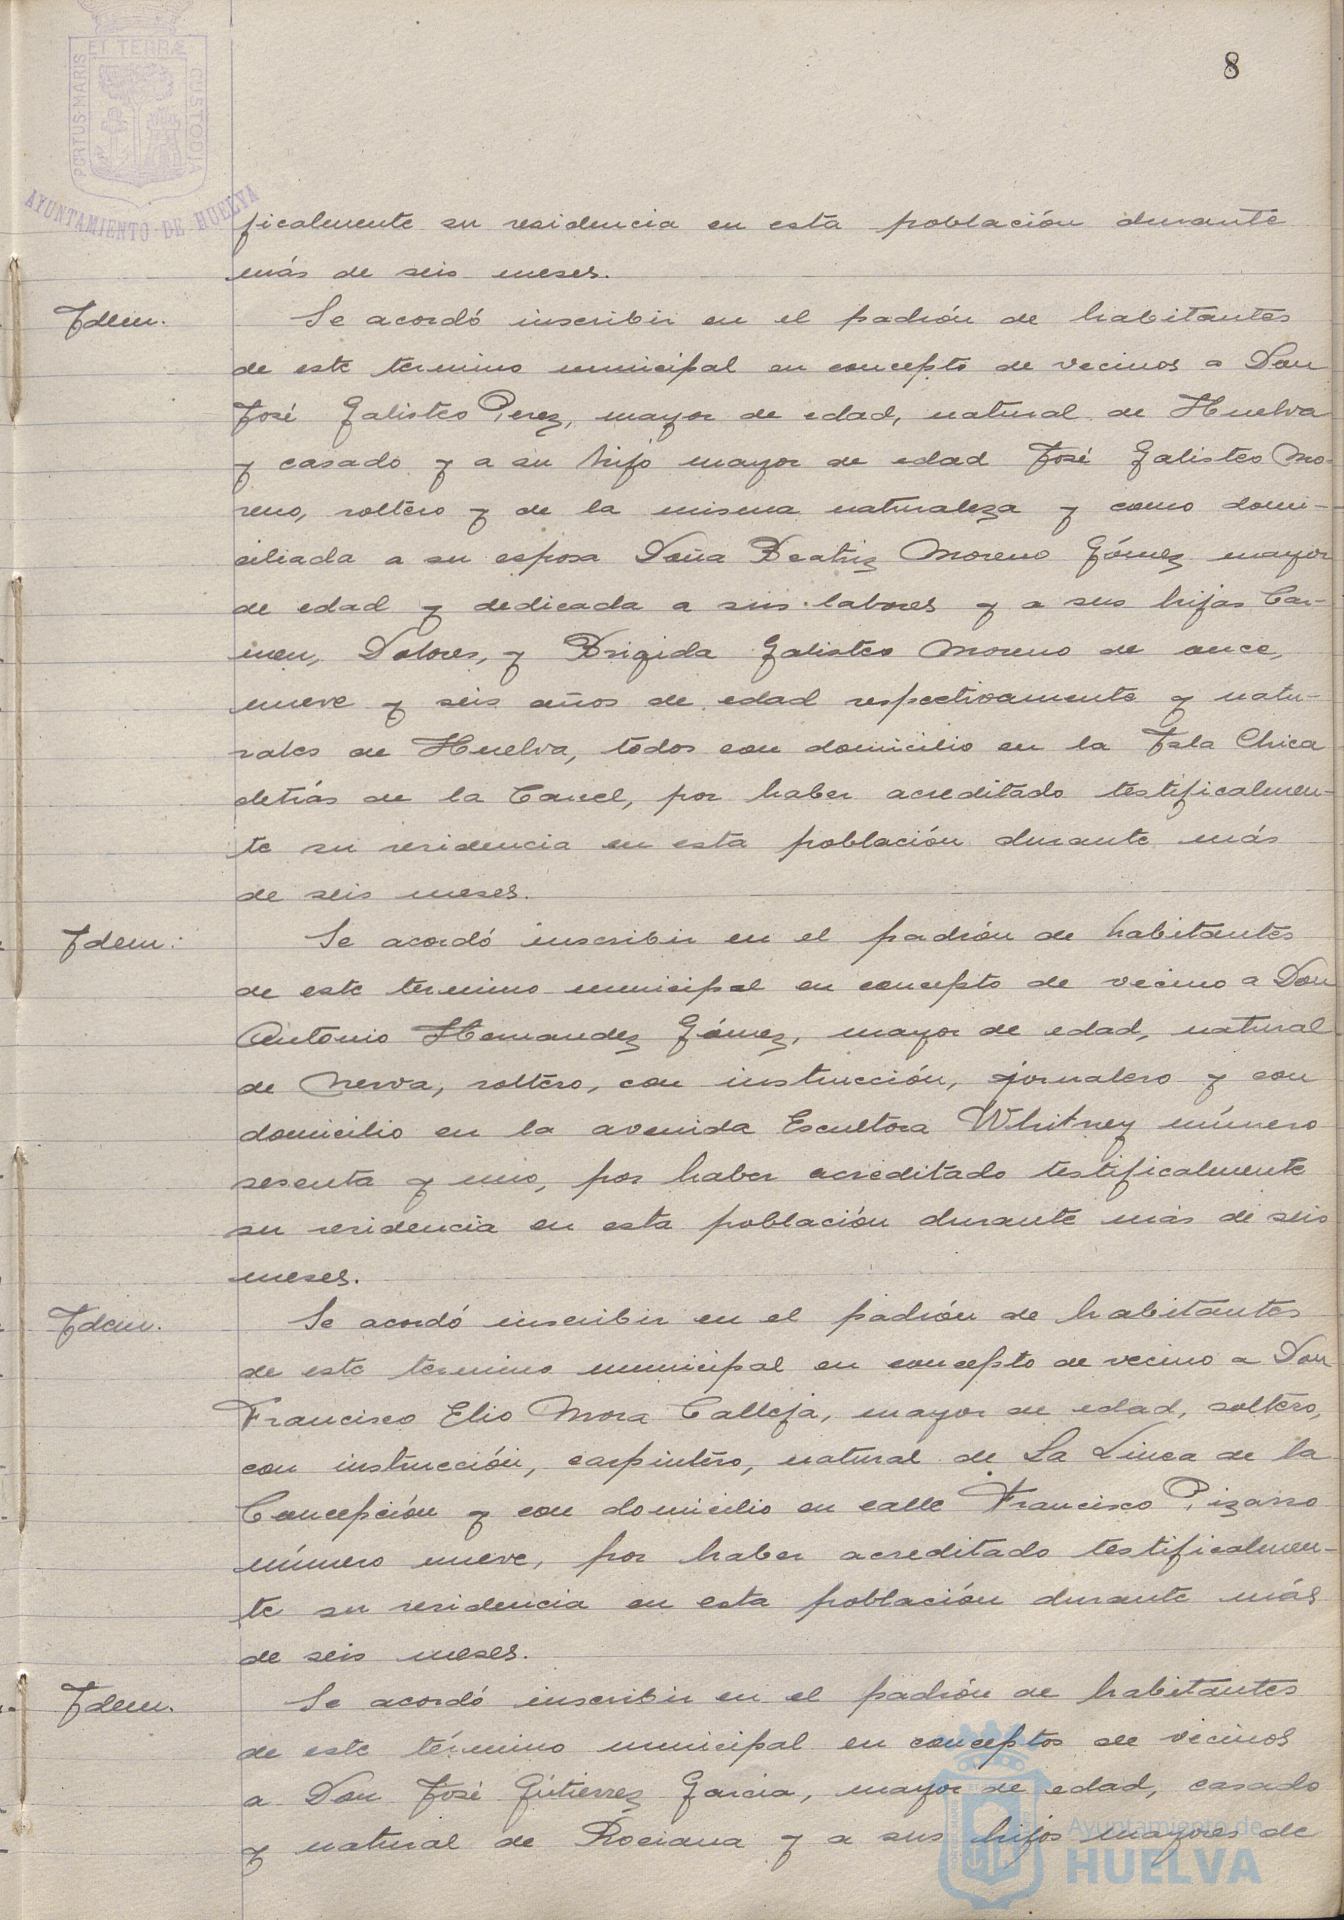 8
ET TERRÆ
PORTUS MARIS
CUSTODIA
AYUNTAMIENTO DE HUELVA
ficalmente su residencia en esta población durante
más de seis meses.
Idem.
Se acordó inscribir en el padrón de habitantes
de este termino municipal en concepto de vecinos a Don
José Galisteo Perez, mayor de edad, natural de Huelva
y casado y a su hijo mayor de edad José Galisteo Mo-
reno, soltero y de la misma naturaleza y como domi-
ciliada a su esposa Doña Beatriz Moreno Gómez mayor
de edad y dedicada a sus labores y a sus hijas Car-
men, Dolores, y Brigida Galisteo Moreno de once,
nueve y seis años de edad respectivamente y natu-
rales de Huelva, todos con domicilio en la Isla Chica
detrás de la Carcel, por haber acreditado testificalmen-
te su residencia en esta población durante más
de seis meses.
Idem.
Se acordó inscribir en el padrón de habitantes
de este termino municipal en concepto de vecino a Don
Antonio Hernandez Gómez, mayor de edad, natural
de Nerva, soltero, con instrucción, jornalero y con
domicilio en la avenida Escultora Whitney número
sesenta y uno, por haber acreditado testificalmente
su residencia en esta población durante más de seis
meses.
Idem.
Se acordó inscribir en el padrón de habitantes
de este termino municipal en concepto de vecino a Don
Francisco Elio Mora Calleja, mayor de edad, soltero,
con instrucción, carpintero, natural de La Linea de la
Concepción y con domicilio en calle Francisco Pizarro
número nueve, por haber acreditado testificalmen-
te su residencia en esta población durante más
de seis meses.
Idem.
Se acordó inscribir en el padrón de habitantes
de este término municipal en conceptos de vecinos
a Don José Gutierrez Garcia, mayor de edad, casado
y natural de Rociana y a sus hijos mayores de
Ayuntamiento de
HUELVA